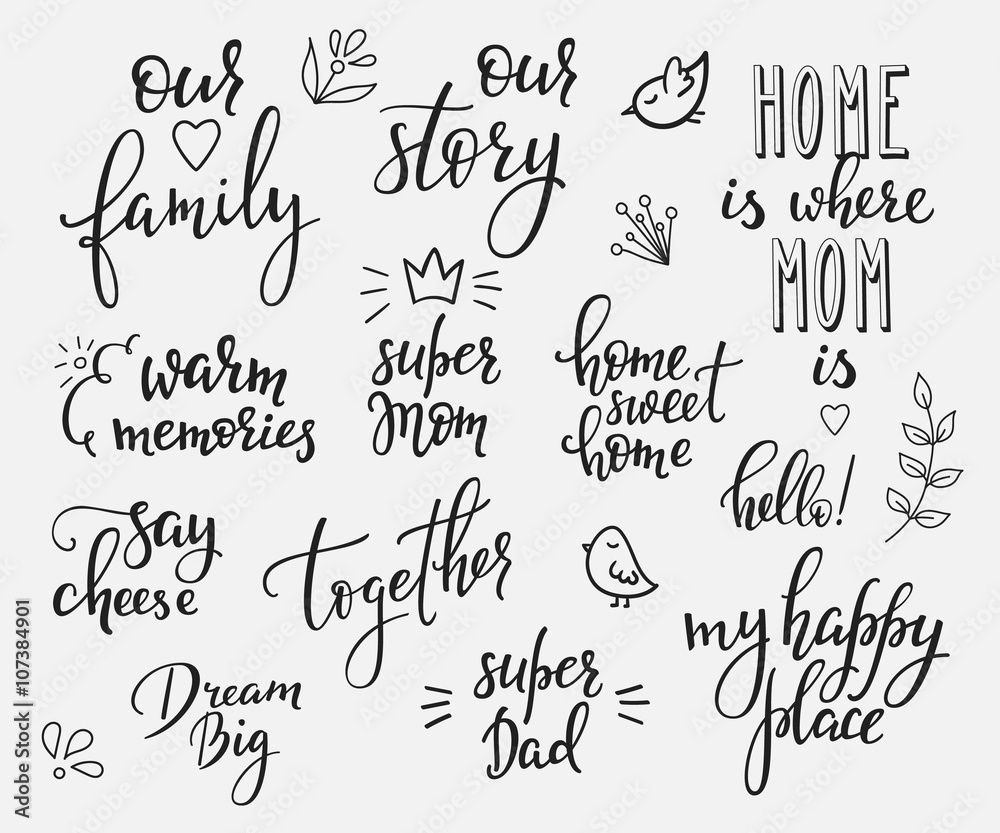 our
family
our
story
HOME
is where
MOM
is
warm
memories
super
Mom
home
sweet
home
hello!
say
cheese
together
my happy
place
Dream
Big
super
Dad
Adobe Stock | #107384901